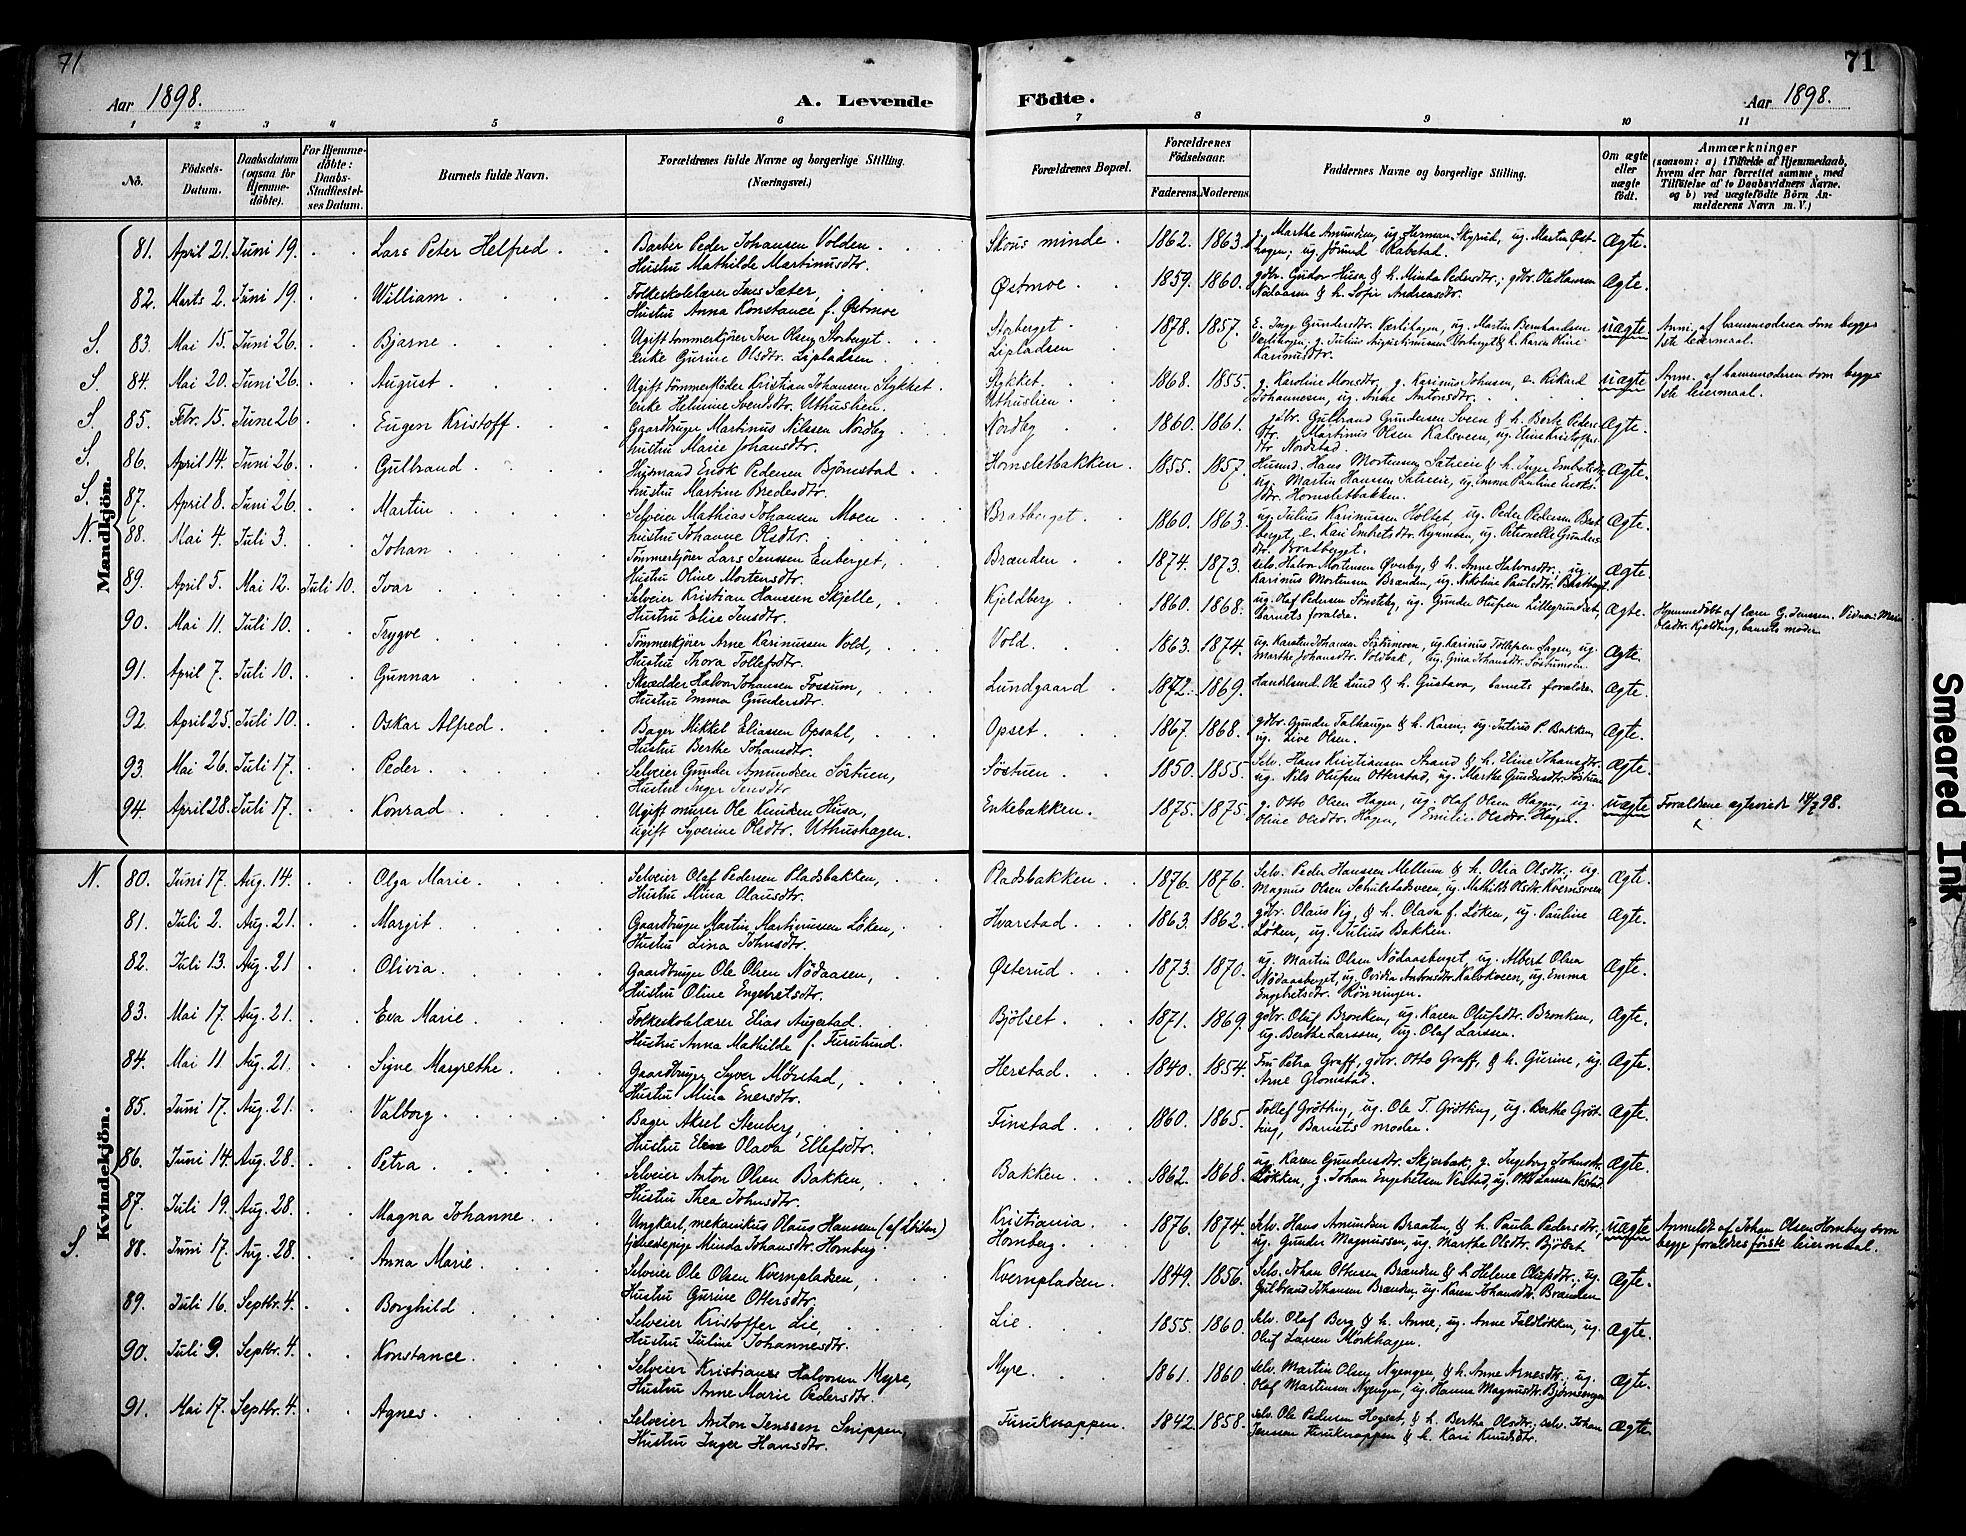 71
71
Aar 1898.
A. Levende
Födte.
Aar 1898.
1 2 3 4 5 6 7 8 9 10 11
No.
Födsels-Datum.
Daabsdatum (ogsaa for Hjemme-döbte).
For Hjemme-döbte: Daabs-Stadfæstel-ses Datum.
Barnets fulde Navn.
Forældrenes fulde Navne og borgerlige Stilling. (Næringsvei.)
Forældrenes Bopæl.
Forældrenes Födselsaar.
Faderens. Moderens.
Faddernes Navne og borgerlige Stilling.
Om ægte eller uægte födt.
Anmærkninger
(saasom: a) i Tilfælde af Hjemmedaab, hvem der har forrettet samme, med Tilföielse af to Daabsvidners Navne. og b) ved uægtefödte Börn An-melderens Navn m. V.)
Mandkjön.
81. April 21. Juni 19. Lars Peter Helfred. Barber Peder Johansen Volden. Hustru Mathilde Martinusdtr. Skous minde. 1862. 1863. g. Marthe Amundsen, ug. Herman Skyrud, ug. Martin Øst-hagen; ug. Jörund Rabstad. Ægte.
82. Marts 2. Juni 19. William. Folkeskolelærer Jens Sæter, Hustru Anna Konstance f. Østmoe Østmoe. 1859. 1860. gdbr. Gudor Husa & h. Minda Pedersdtr.; gdbr. Ole Hansen Nödaasen & h. Sofie Andreasdtr. Ægte.
S. 83. Mai 15. Juni 26. Bjarne. Ugift tömmerkjörer Iver Olsen Storberget. enke Gurine Olsdtr. Lipladsen. Storberget. Lipladsen 1878. 1857. E. Inge Gundersdtr. Vestihagen, ug. Martin Bernhardsen Vestihagen; g. Julius Augustinussen Storberget & h. Karen Karinusdtr. uægte Anm. af barnemoderen som begges 1ste leiermaal.
S. 84. Mai 20. Juni 26. August. Ugift tömmerkjörer Kristian Johansen Stykket. enke Helmine Svendsdtr. Uthuslien. Stykket. Uthuslien 1868. 1855. g. Karoline Monsdtr, g. Karinus Johnsen, e. Rikard Johannesen, ug. Anne Antonsdtr. uægte Anm. af barnemoderen som begges 1ste leiermaal.
S. 85. Febr. 15. Juni 26. Eugen Kristoff. Gaardbruger Martinus Nilssen Nordby hustru Marie Johansdtr. Nordby 1860. 1861. gdbr. Gulbrand Gundersen Sveen & h. Berte Peders-dtr. Martinus Olsen Kalsveen, ug. Eline Kristofers-dtr Nordstad. Ægte.
S. 86. April 14. Juni 26. Gulbrand. Husmand Enok Pedersen Björnstad hustru Martine Bredesdtr. Hornsletbakken. 1855. 1857. Husmd. Hans Mortensen Sætreie & h. Inger Embretsdtr, ug. Martin Hansen Sætreie, ug. Emma Pauline Enoks-dtr. Hornsletbakken. Ægte.
S. 87. April 8. Juni 26. Martin Selveier Mathias Johansen Moen hustru Johanne Olsdtr. Bratberget. 1860. 1863. ug. Julius Karinussen Holtet, ug. Peder Pedersen Brat-berget, e. Kari Embretsdtr. Kynmoen, ug. Petronelle Gunders-dtr. Bratberget. Ægte.
N. 88. Mai 4. Juli 3. Johan Tömmerkjörer Lars Jenssen Enberget, Hustru Oline Mortensdtr. Brænden 1874. 1873. selv. Halvor Mortensen Øverby, & h. Anne Halvorsdtr.; ug. Karinus Mortensen Brænden, ug. Nikoline Paulsdtr. Bratberget. Ægte.
89. April 5. Mai 12. Juli 10. Ivar Selveier Kristian Hanssen Skjelle, Hustru Elise Jensdtr. Kjeldberg 1860. 1868. ug. Olaf Pedersen Sönsteby, ug. Gunder Olufsen Lillegrundset, barnets forældre. Ægte. Hjemmedöbt af lærer G. Jenssen. Vidner: Marie Olsdtr. Kjeldberg, barnets moder
90. Mai 11. Juli 10. Trygve Tömmerkjörer Arne Karinussen Vold, Hustru Thora Tollefsdtr. Vold. 1863. 1874. ug. Karsten Johansen Söstumoen, ug. Karinus Tollefsen Hagen, ug. Marthe Johansdtr. Voldbak, ug. Gina Johansdtr. Söstumoen. Ægte.
91. April 7. Juli 10. Gunnar Skrædder Halvor Johansen Fossum, Hustru Emma Gundersdtr. Lundgaard 1872. 1869. Handelsmd. Ole Lund & h. Gustava, barnets forældre. Ægte.
92. April 25. Juli 10. Oskar Alfred. Bager Mikkel Eliassen Opsahl, Hustru Berthe Johansdtr. Opset. 1867. 1868. gdbr. Gunder Talhaugen & h. Karen; ug. Julius P. Bakken, ug. Live Olsen. Ægte.
93. Mai 26. Juli 17. Peder. Selveier Gunder Amundsen Söstuen, Hustru Inger Jensdtr. Söstuen 1850. 1855. Selv. Hans Kristiansen Strand & h. Eline Johansdtr., ug. Nils Olufsen Otterstad, ug. Marthe Gundersdtr. Söstuen Ægte.
94. April 28. Juli 17. Konrad Ugift murer Ole Knudsen Husa, ugift Syverine Olsdtr. Uthushagen. Enkebakken. 1875. 1875. g. Otto Olsen Hagen, ug. Olaf Olsen Hagen, ug. Oline Olsdtr. Hagen, Emilie Olsdtr. Hagen. uægte Forældrene ægteviede 98.
Kvindekjön.
N. 80. Juni 17. Aug. 14. Olga Marie. Selveier Olaf Pedersen Pladsbakken, Hustru Mina Olausdtr. Pladsbakken. 1876. 1876. Selv. Peder Hanssen Mellum & h. Olia Olsdtr.; ug. Magnus Olsen Schulstadsveen, ug. Mathilde Olsdtr. Kvernsveen Ægte.
81. Juli 2. Aug. 21. Margit. Gaardbruger Martin Martinussen Löken, Hustru Lina Johnsdtr. Hvarstad 1863. 1862. gdbr. Olaus Vig, & h. Olava f. Löken, ug. Pauline Löken, ug. Julius Bakken. Ægte.
82. Juli 13. Aug. 21 Olivia. Gaardbruger Ole Olsen Nödaasen, Hustru Oline Engebretsdtr. Østerud. 1873. 1870. ug. Martin Olsen Nödaasberget, ug. Albert Olsen Nödaasberget, ug. Ovidia Antonsdtr. Kalvkveen, ug. Emma Engebretsdtr. Rönningen. Ægte.
83. Mai 17. Aug. 21. Eva Marie. Folkeskolelærer Elias Augestad. Hustru Anna Mathilde f. Furulund. Bjölset. 1871. 1869. gdbr. Oluf Bronken, ug. Karen Olufsdtr. Bronken, ug. Berthe Larssen, ug. Olaf Larssen. Ægte.
84. Mai 11 Aug. 21. Signe Margrethe. Gaardbruger Syver Mörstad, Hustru Mina Enersdtr. Herstad. 1840. 1854. Fru Petra Graff, gdbr. Otto Graff, & h. Gurine, ug. Arne Glomstad. Ægte.
85. Juni 17. Aug. 21. Valborg Bager Aksel Stenberg, Hustru Olava Ellefsdtr. Finstad 1860. 1865. Tollef Grötting, ug. Ole T. Grötting, ug. Berthe Gröt-ting, Barnets moder. Ægte.
86. Juni 14. Aug. 28. Petra Selveier Anton Olsen Bakken, Hustru Thea Johnsdtr. Bakken 1862. 1868. ug. Karen Gundersdtr. Skjerbæk, g. Ingeborg Johnsdtr. Løkken, g. Johan Engebretsen Vestad, ug. Otto Larsen Vestad Ægte.
87. Juli 19. Aug. 28. Magna Johanne Ungkarl, mekanikus Olaus Hanssen (af Löiten) tjenestepige Minda Johansdtr. Hornberg. Kristiania Hornberg. 1876. 1874. Selv. Hans Amundsen Braaten, & h. Paula Pedersdtr, ug. Gunder Magnussen, ug. Marthe Olsdtr. Bjölset. uægte Anmeldt af Johan Olsen Hornberg som begge forældres förste leiermaal.
S. 88. Juni 17. Aug. 28. Anna Marie. Selveier Ole Olsen Kvernpladsen, Hustru Gurine Ottersdtr. Kvernpladsen. 1849. 1856. Selv. Johan Ottersen Brænden & h. Helene Olufsdtr.; ug. Gulbrand Johansen Brænden, ug. Karen Johansdtr. Brænden Ægte.
89. Juli 16. Septbr. 4. Borghild Selveier Kristoffer Lie, Hustru Juline Johannesdtr. Lie. 1855. 1860. Selv. Olaf Berg & h. Anne; ug. Anne Faldlökken, ug. Oluf Larsen Morkhagen. Ægte.
90. Juli 9. Septbr. 4. Konstance. Selveier Kristian Halvorsen Myre, Hustru Anne Marie Pedersdtr. Myre 1861. 1860. selv. Martin Olsen Nyengen, & h. Anne Arnesdtr.; ug. Olaf Martinsen Nyengen, ug. Hanna Magnusdtr. Björnsengen Ægte.
91. Mai 17. Septbr. 4. Agnes. Selveier Anton Jenssen Snippen, Hustru Inger Hansdtr. Furuknappen. 1842. 1858. selv. Ole Pedersen Hogset, & h. Berthe Olsdtr.; selv. Johan Jenssen Furuknappen & h. Kari Knudsdtr. Ægte.
Smeared Ink